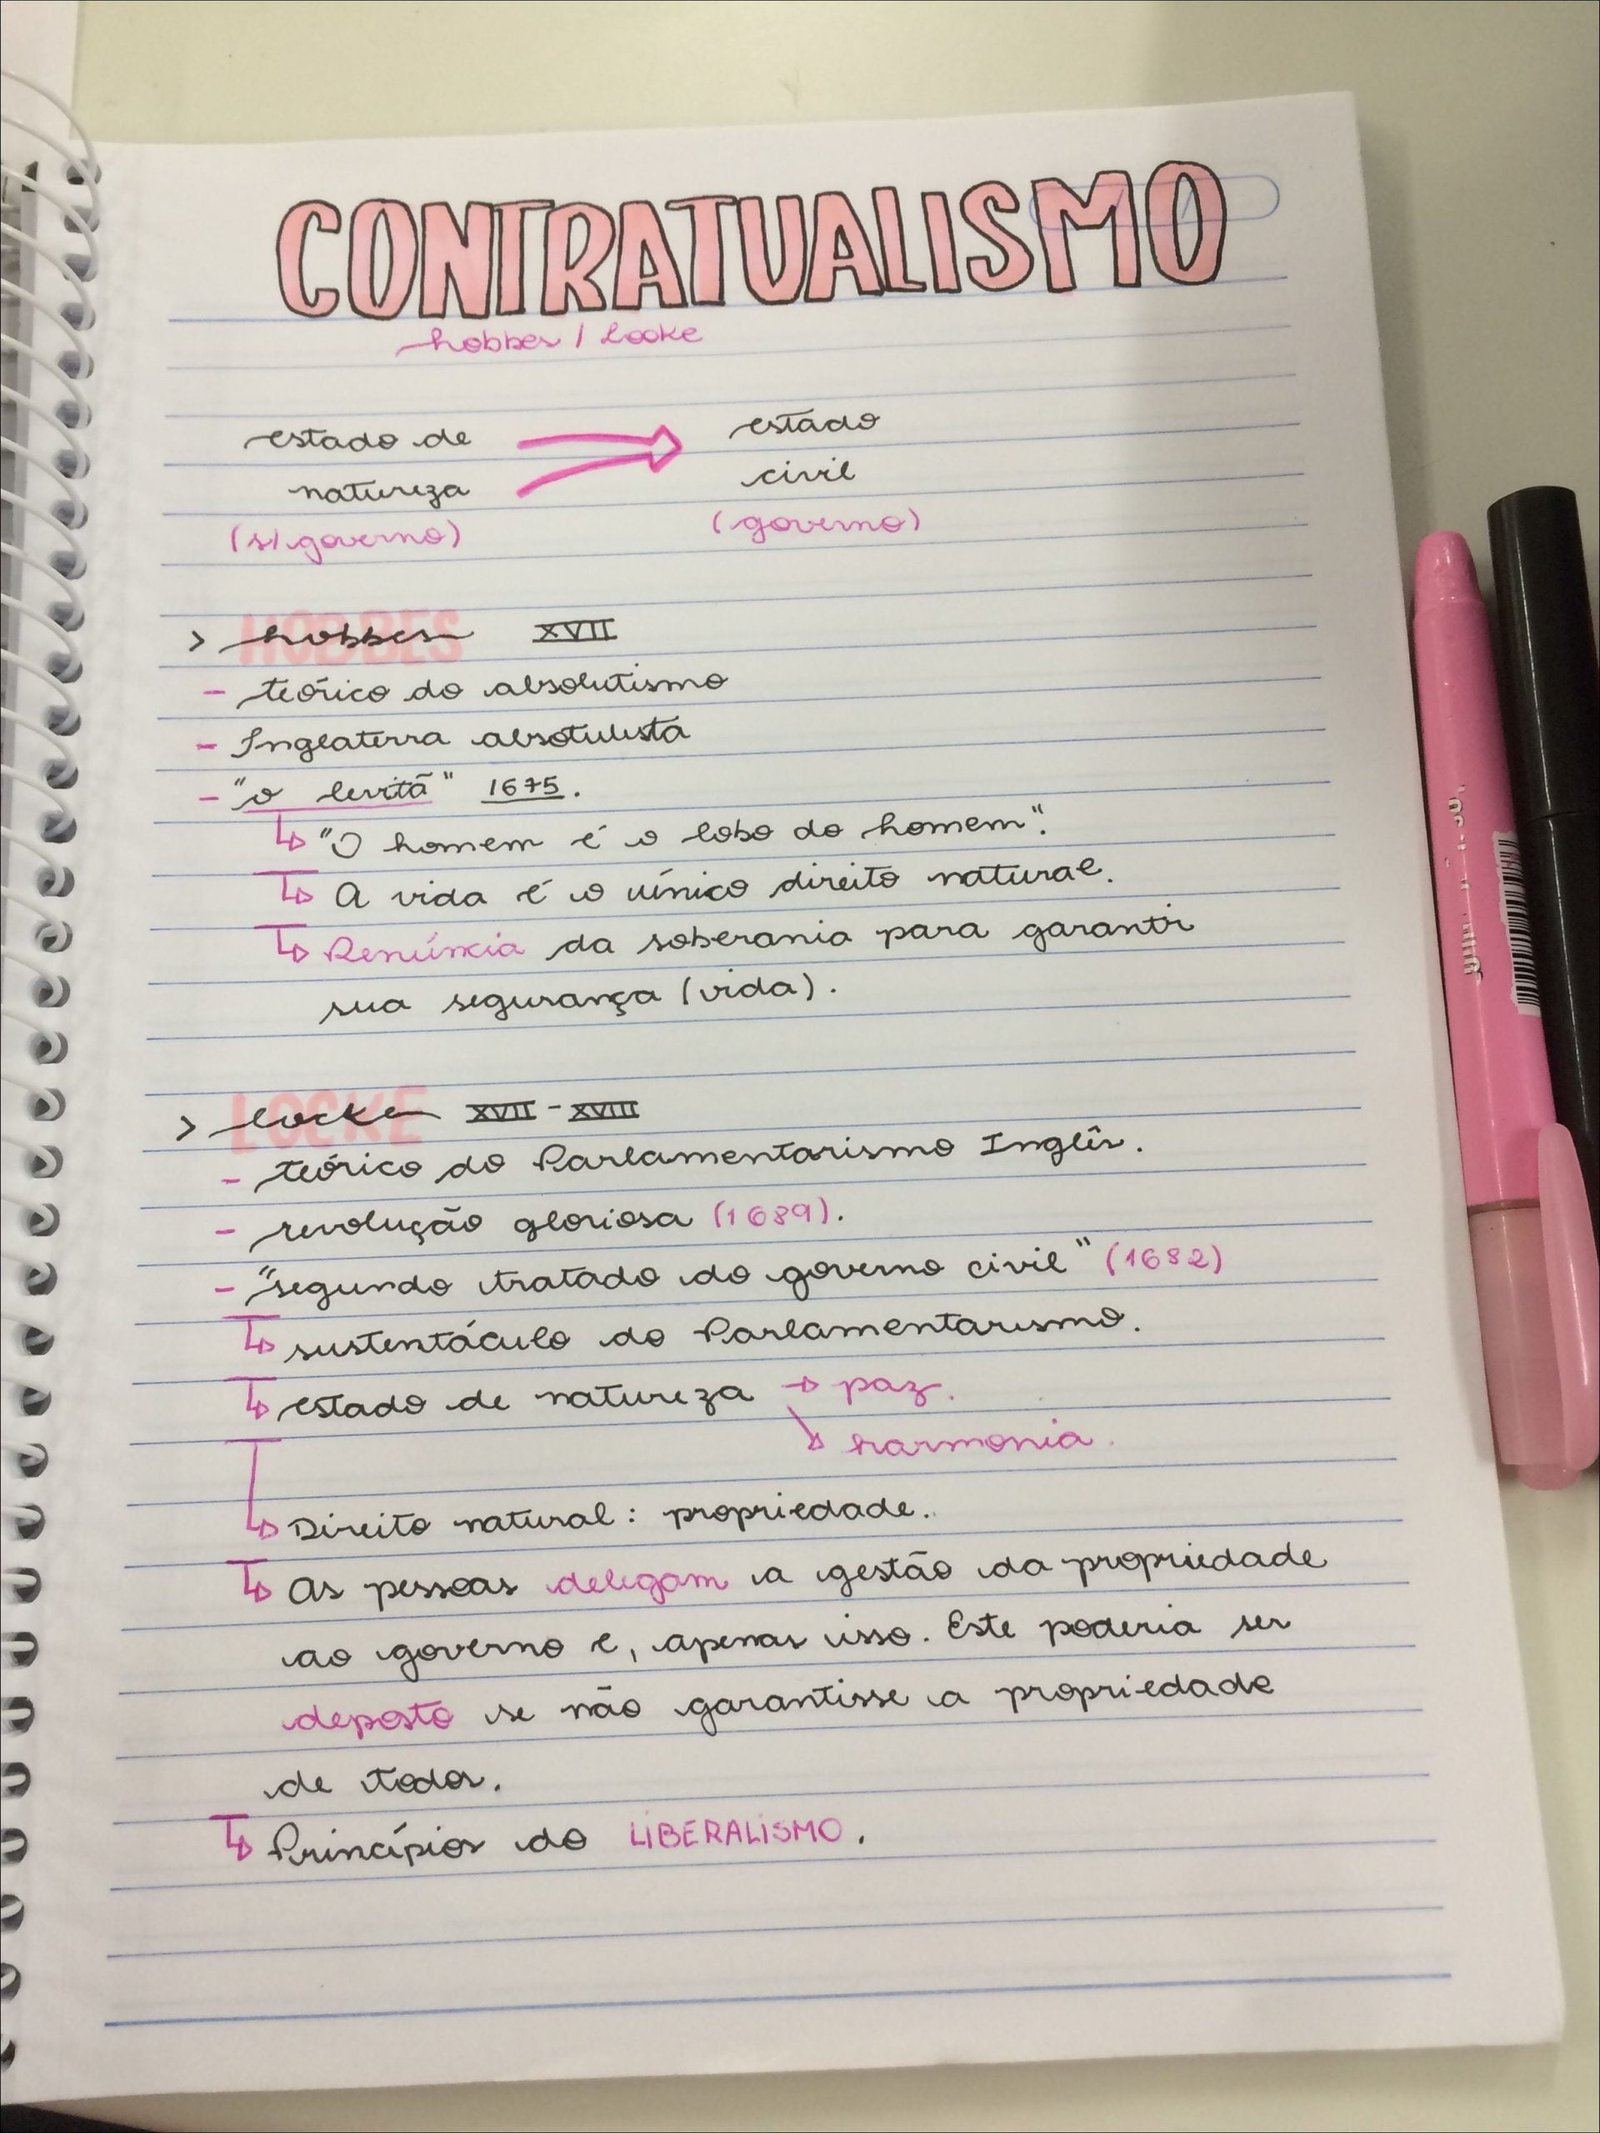 CONTRATUALISMO
hobbes / locke
estado de
natureza
(s/ governo)
estado
civil
(governo)
HOBBES
> hobbes XVII
- teórico do absolutismo
- Inglaterra absotulista
- "o levitã" 1675.
"O homem é o lobo do homem".
A vida é o único direito natural.
Renúncia da soberania para garantir
sua segurança (vida).
LOCKE
> locke XVII - XVIII
- teórico do Parlamentarismo Inglês.
- revolução gloriosa (1689).
- "segundo tratado do governo civil" (1682)
sustentáculo do Parlamentarismo.
estado de natureza → paz.
harmonia.
Direito natural: propriedade.
As pessoas delegam a gestão da propriedade
ao governo e, apenas isso. Este poderia ser
deposto se não garantisse a propriedade
de todos.
Princípios do LIBERALISMO.